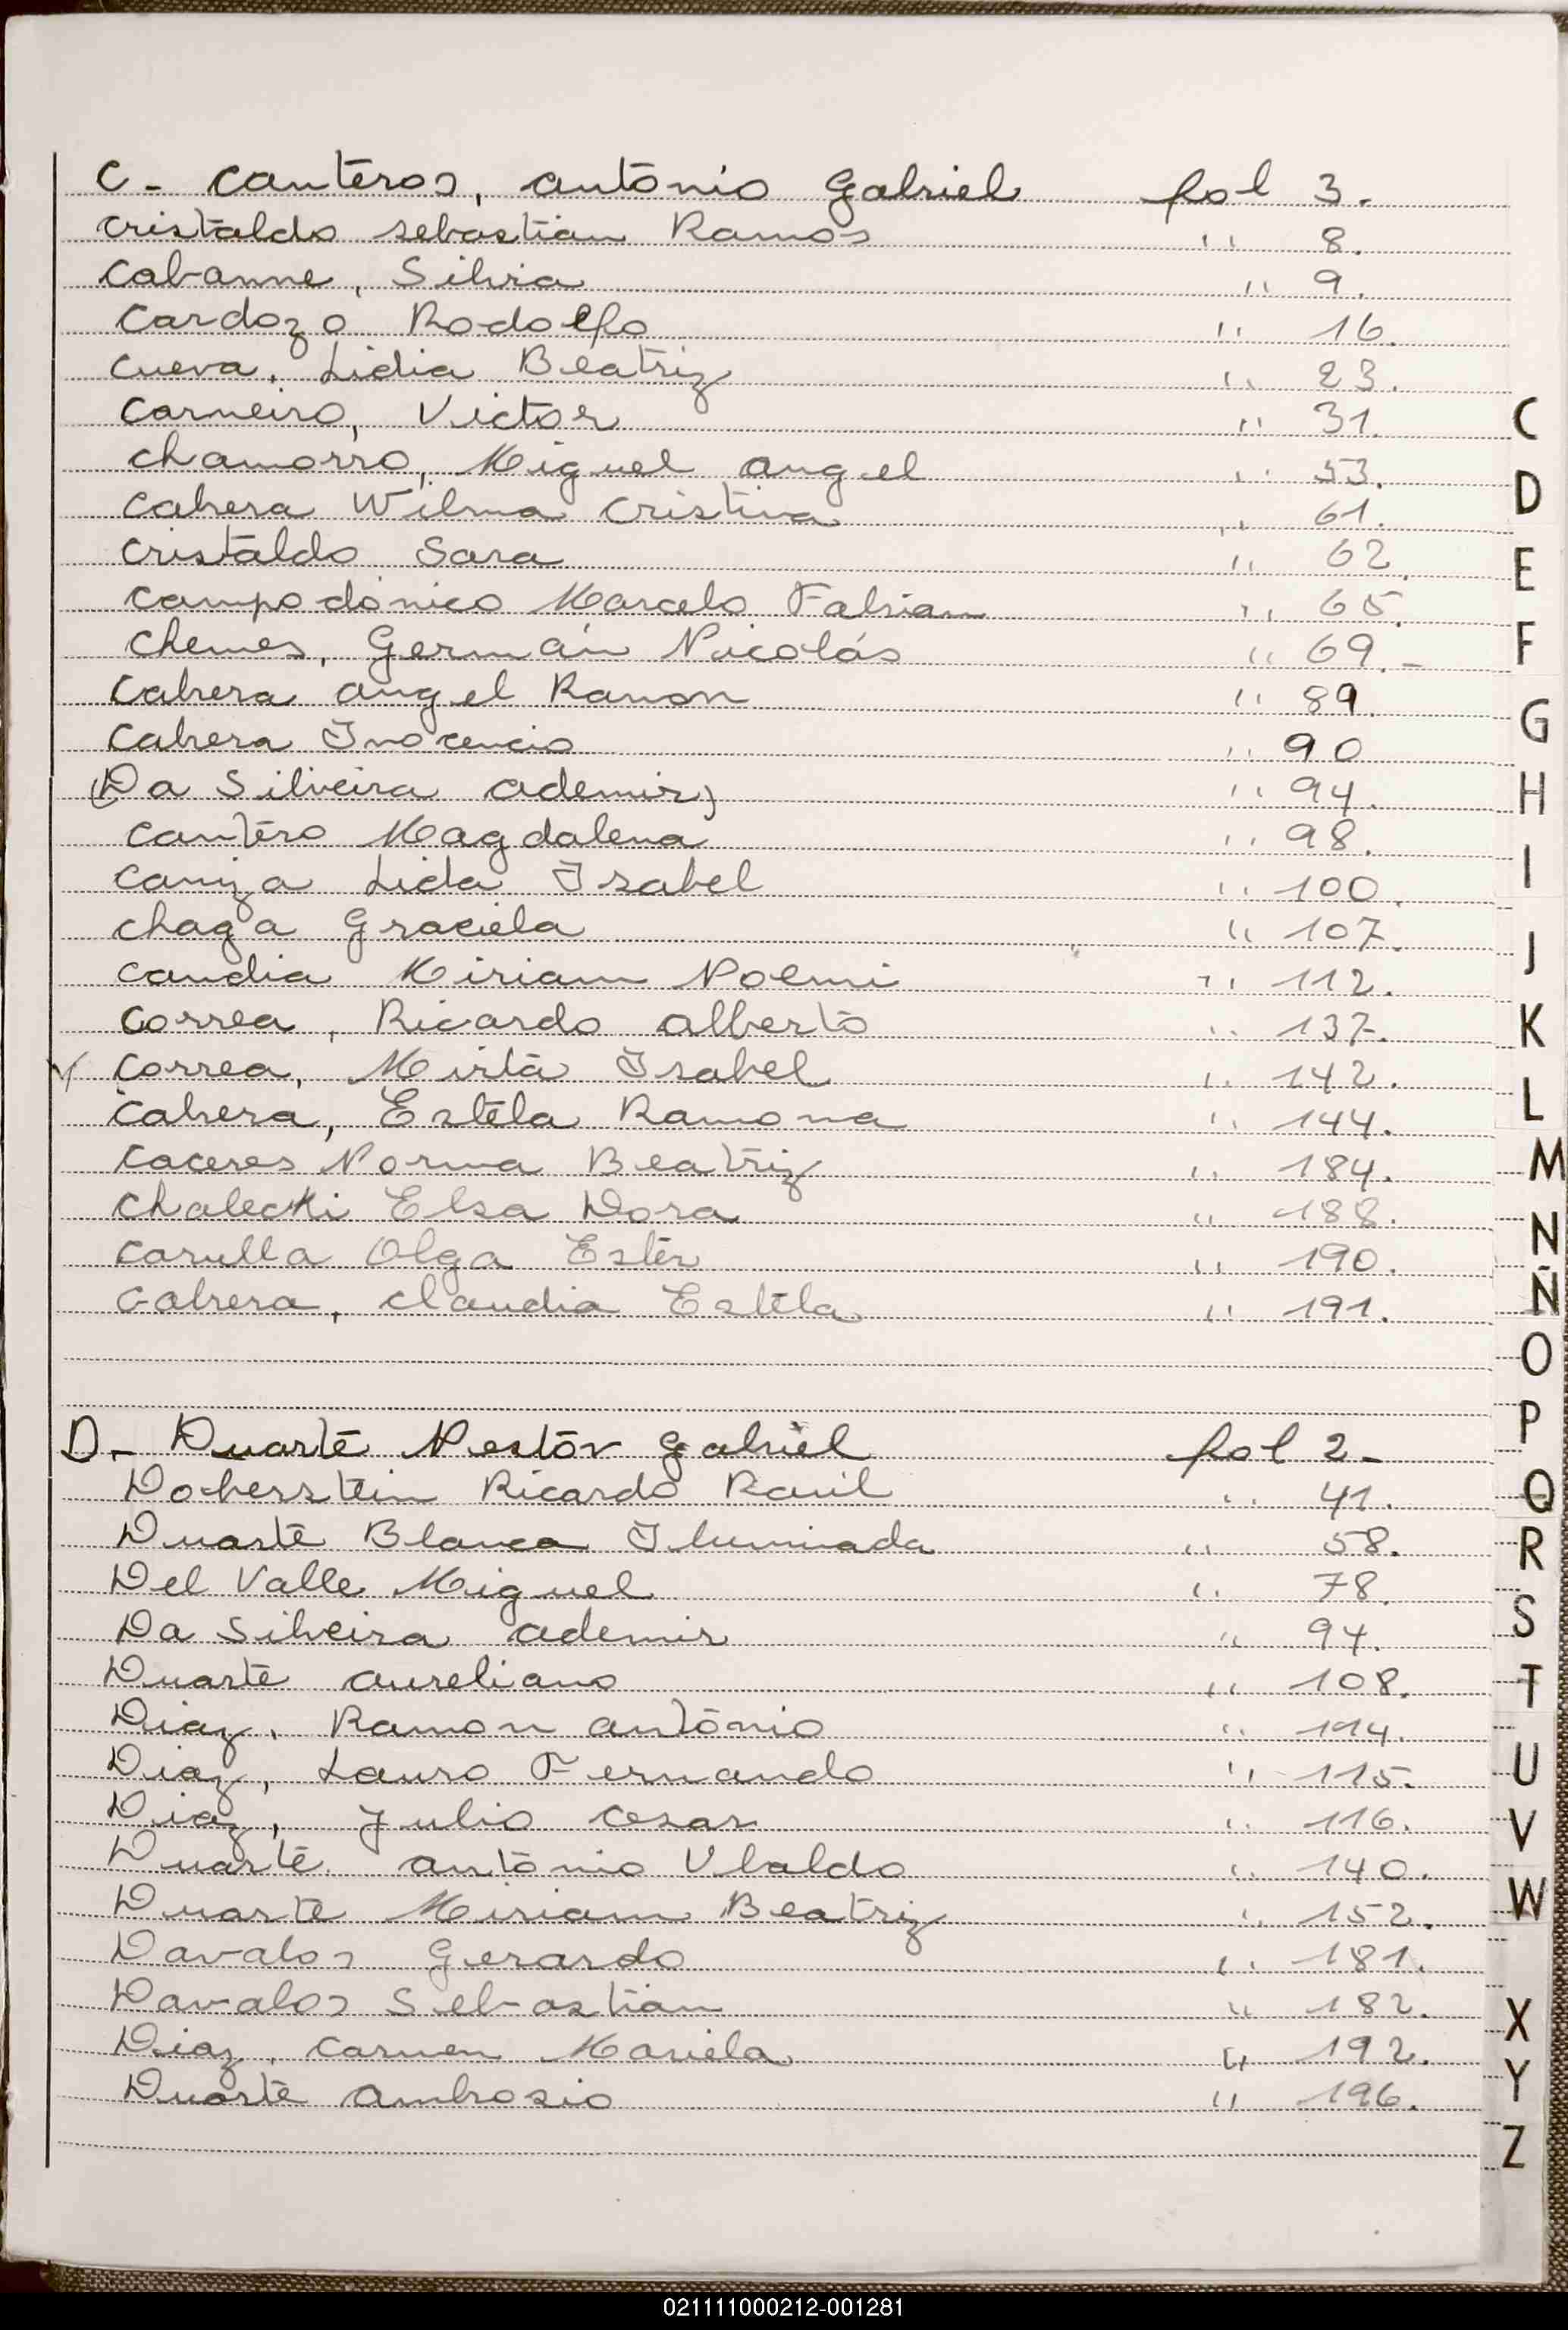 C - Canteros, Antonio Gabriel fol 3.
Cristaldo Sebastian Ramos " 8.
Cabanne, Silvia " 9.
Cardozo Rodolfo " 16.
Cueva, Lidia Beatriz " 23.
Carneiro, Victor " 31.
Chamorro, Miguel Angel " 53.
Cabrera Wilma Cristina " 61.
Cristaldo Sara " 62.
Campodónico Marcelo Fabian " 65.
Chemes, Germán Nicolás " 69.-
Cabrera Angel Ramon " 89.
Cabrera Inocencio " 90
(Da Silveira Ademir) " 94.
Cantero Magdalena " 98.
Caniza Lida Isabel " 100.
Chaga Graciela " 107.
Candia Miriam Noemi " 112.
Correa, Ricardo Alberto " 137.
Correa, Mirta Isabel " 142.
Cabrera, Estela Ramona " 144.
Caceres Norma Beatriz " 184.
Chalecki Elsa Dora " 188.
Carulla Olga Ester " 190.
Cabrera, Claudia Estela " 191.
D - Duarte Nestor Gabriel fol 2-
Doberstein Ricardo Raúl " 41.
Duarte Blanca Iluminada " 58.
Del Valle Miguel " 78.
Da Silveira Ademir " 94.
Duarte Aureliano " 108.
Diaz, Ramon Antonio " 114.
Diaz, Lauro Fernando " 115.
Diaz, Julio Cesar " 116.
Duarte Antonio Ubaldo " 140.
Duarte Miriam Beatriz " 152.
Davalos Gerardo " 181.
Davalos Sebastian " 182.
Diaz, Carmen Mariela " 192.
Duarte Ambrosio " 196.
C
D
E
F
G
H
I
J
K
L
M
N
Ñ
O
P
Q
R
S
T
U
V
W
X
Y
Z
021111000212-001281